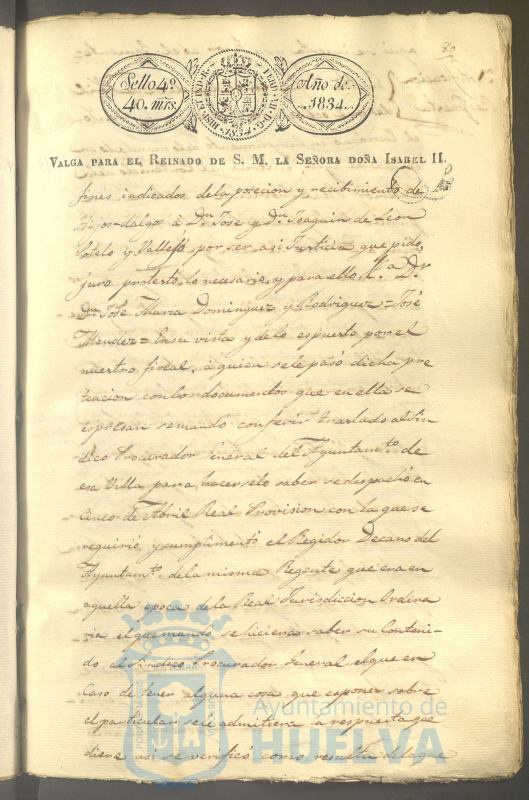 80
Sello 4º
40. mrs.
HISP. ET IND. R.
1834
Año de
1834.
VALGA PARA EL REINADO DE S. M. LA SEÑORA DOÑA ISABEL II.
fines indicados de la posecion y recibimiento de
Hijos-dalgo á Dn. José y Dn. Joaquin de Leon
Sotelo y Vallejo por ser asi Justicia que pido,
juro protesto lo necesario, y para ello &.a Dr.
Dn. José Maria Dominguez y Rodriguez = José
Mendez = En su vista y de lo espuesto por el
nuestro fiscal, á quien se le pasó dicha pe
ticion con los documentos que en ella se
espresan se mandó conferir traslado al Sin
dico Procurador General del Ayuntam.to de
esa Villa para hacerselo saber se despachó en
cinco de Abril Real Provision con la que se
requirió, y cumplimentó el Regidor Decano del
Ayuntam.to de la misma Regente que era en
aquella epoca de la Real Jurisdiccion Ordina
ria el que mandó se hiciera saber su conteni-
do al Sindico Procurador General el que en
caso de tener alguna cosa que esponer sobre
el particular se le admitiera la respuesta que
diere asi se verificó como resulta de la que
Ayuntamiento de
HUELVA